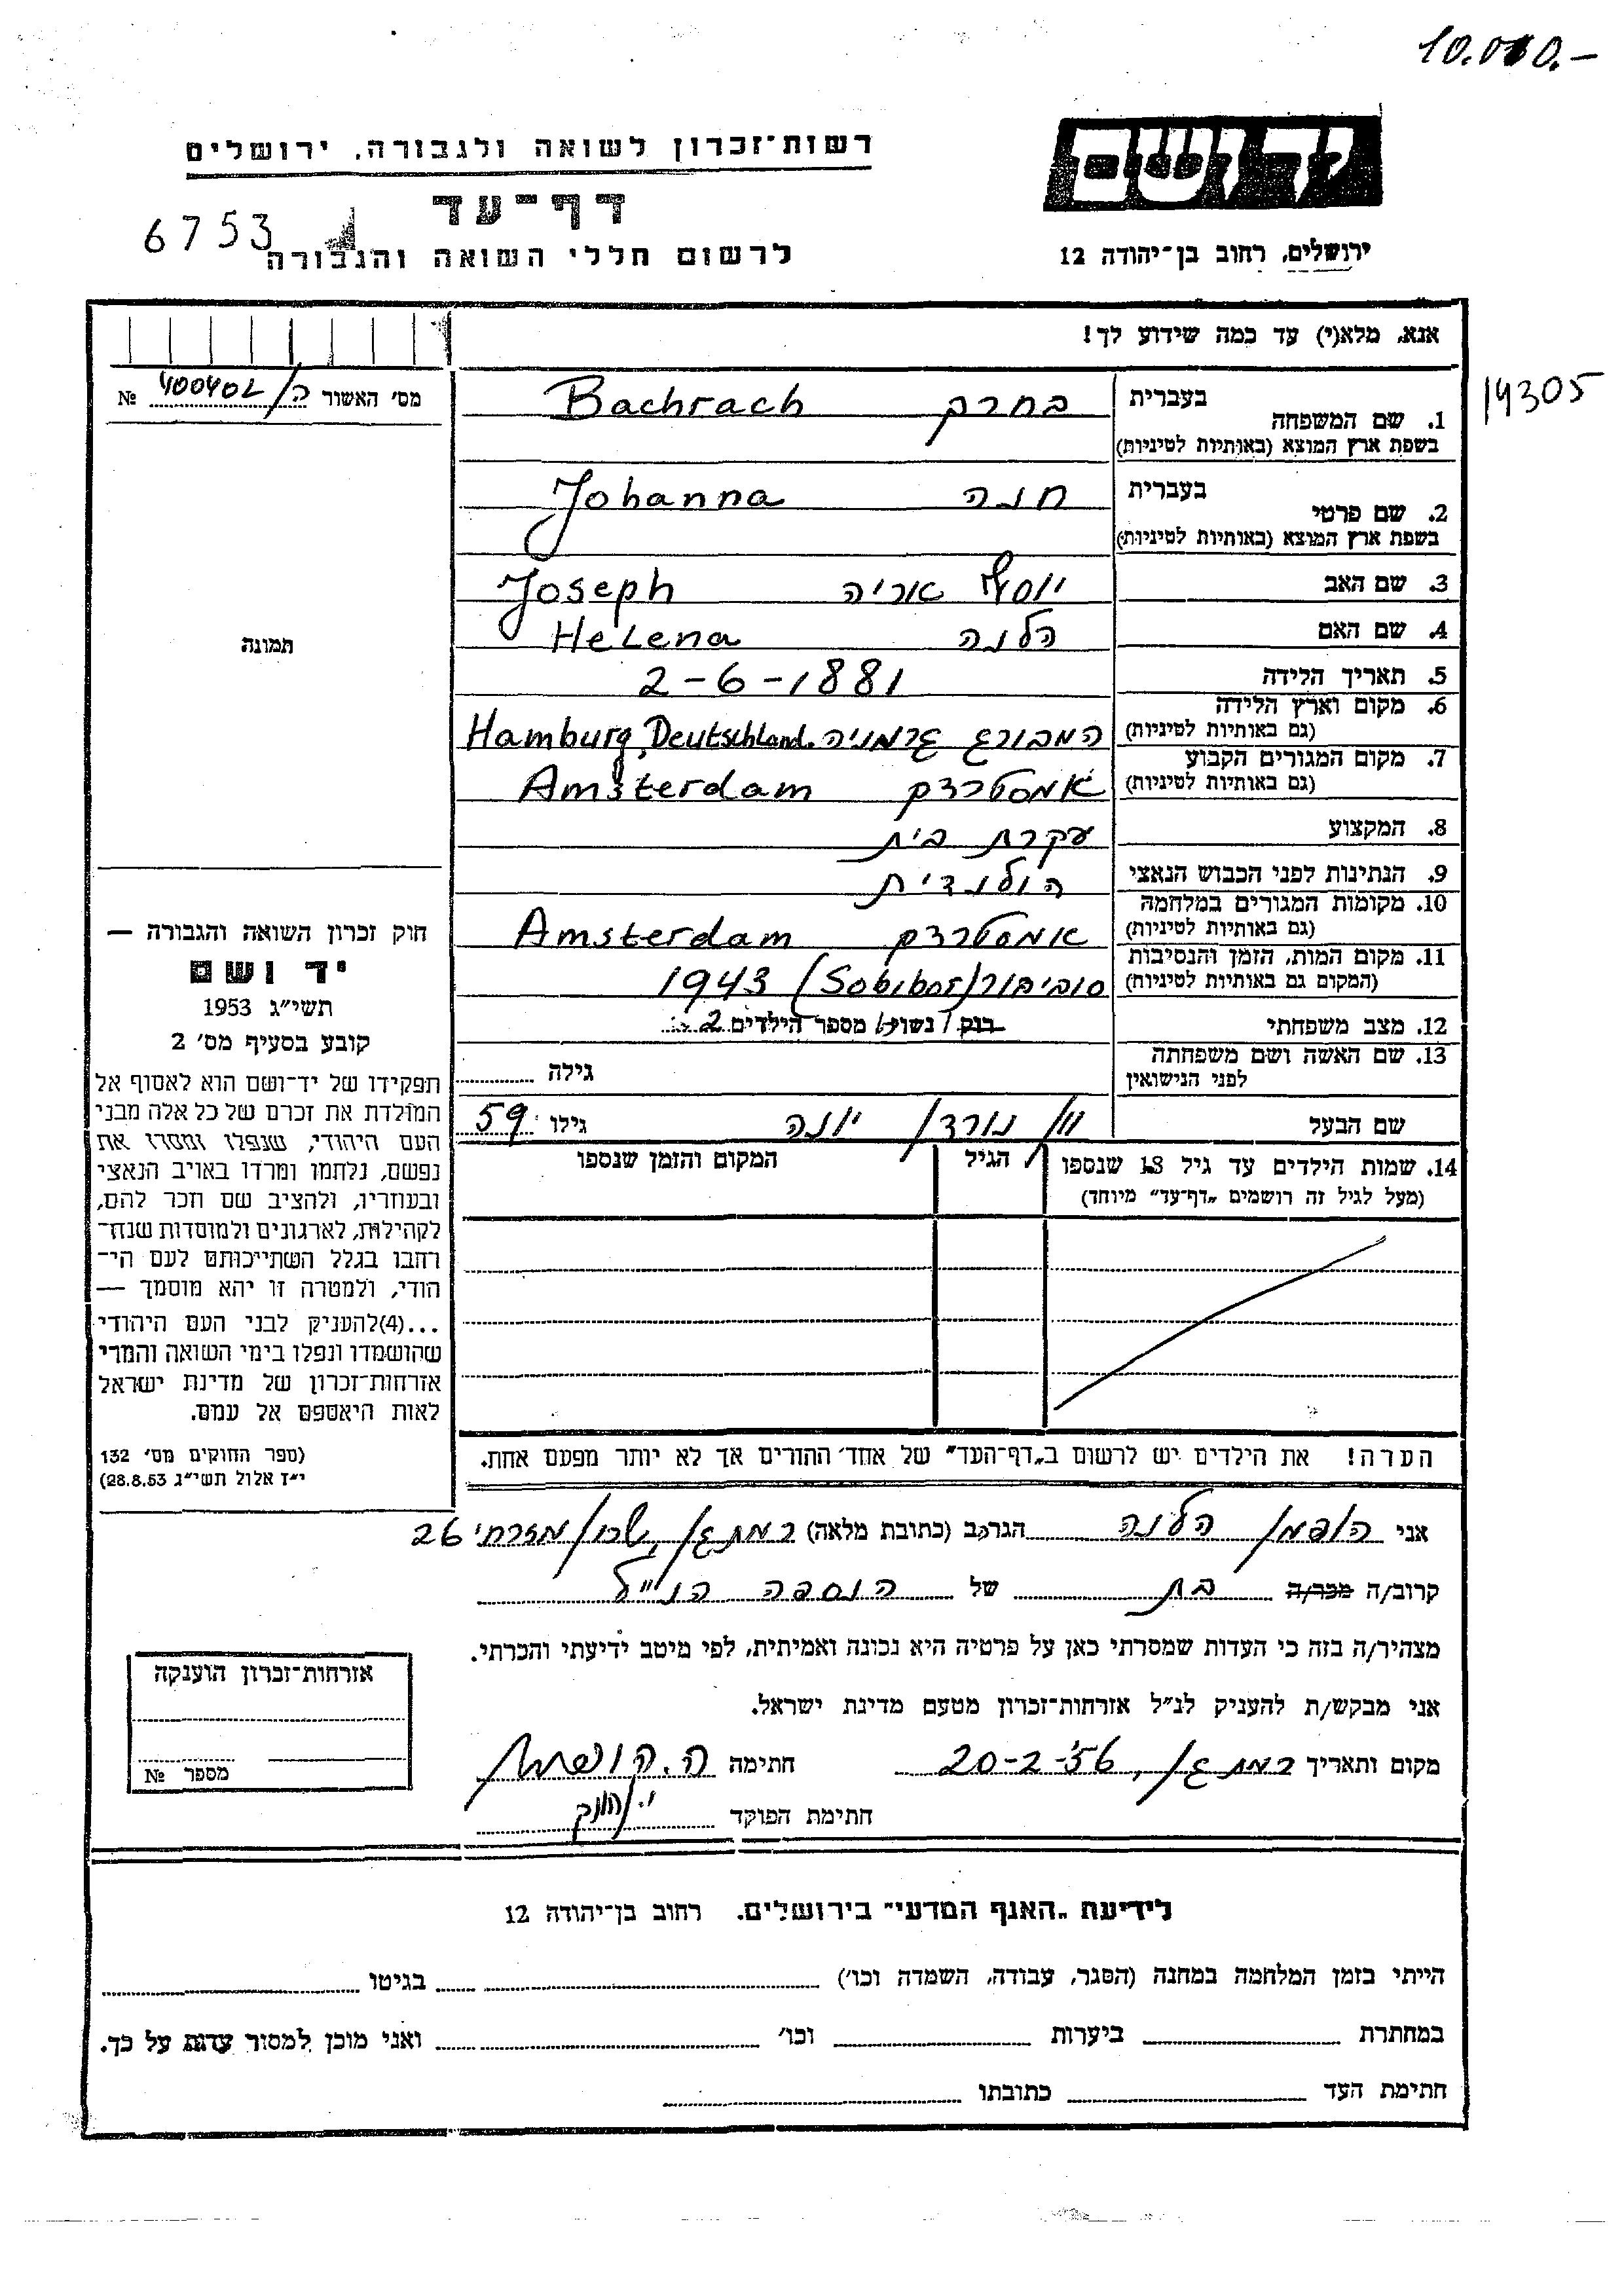 10.000.-
יד ושם
רשות־זכרון לשואה ולגבורה, ירושלים
דף־עד
6753
לרשום חללי השואה והגבורה
ירושלים, רחוב בן־יהודה 12
אנא, מלא(י) עד כמה שידוע לך!
14305
מס׳ האשור ה/400402 №
תמונה
1. שם המשפחה בעברית בחרך Bachrach
בשפת ארץ המוצא (באותיות לטיניות)
2. שם פרטי בעברית חנה Johanna
בשפת ארץ המוצא (באותיות לטיניות)
3. שם האב יוסף אריה Joseph
4. שם האם הלנה Helena
5. תאריך הלידה 2-6-1881
6. מקום וארץ הלידה המבורג גרמניה Hamburg, Deutschland.
(גם באותיות לטיניות)
7. מקום המגורים הקבוע אמסטרדם Amsterdam
(גם באותיות לטיניות)
8. המקצוע עקרת בית
9. הנתינות לפני הכבוש הנאצי הולנדית
10. מקומות המגורים במלחמה אמסטרדם Amsterdam
(גם באותיות לטיניות)
11. מקום המות, הזמן והנסיבות סוביבור (Sobibor) 1943
(המקום גם באותיות לטיניות)
12. מצב משפחתי רוק / נשוי / מספר הילדים 2
13. שם האשה ושם משפחתה
לפני הנישואין גילה
שם הבעל יונה גילו 59
14. שמות הילדים עד גיל 18 שנספו הגיל המקום והזמן שנספו
(מעל לגיל זה רושמים „דף־עד״ מיוחד)
הערה! את הילדים יש לרשום ב„דף־העד״ של אחד ההורים אך לא יותר מפעם אחת.
חוק זכרון השואה והגבורה —
יד ושם
תשי״ג 1953
קובע בסעיף מס׳ 2
תפקידו של יד־ושם הוא לאסוף אל
המולדת את זכרם של כל אלה מבני
העם היהודי, שנפלו ומסרו את
נפשם, נלחמו ומרדו באויב הנאצי
ובעוזריו, ולהציב שם וזכר להם,
לקהילות, לארגונים ולמוסדות שנח־
רבו בגלל השתייכותם לעם הי־
הודי, ולמטרה זו יהא מוסמך —
...(4)להעניק לבני העם היהודי
שהושמדו ונפלו בימי השואה והמרי
אזרחות־זכרון של מדינת ישראל
לאות היאספם אל עמם.
(ספר החוקים מס׳ 132
י״ז אלול תשי״ג 28.8.53)
אני הופמן הלנה הגר/ב (כתובת מלאה) רמת גן, שכון מזרחי 26
קרוב/ה מכר/ה בת של הנספה הנ״ל
מצהיר/ה בזה כי העדות שמסרתי כאן על פרטיה היא נכונה ואמיתית, לפי מיטב ידיעתי והכרתי.
אני מבקש/ת להעניק לנ״ל אזרחות־זכרון מטעם מדינת ישראל.
מקום ותאריך רמת גן, 20-2-56 חתימה ה. הופמן
חתימת הפוקד
אזרחות־זכרון הוענקה
מספר №
לידיעת „האגף המדעי״ בירושלים. רחוב בן־יהודה 12
הייתי בזמן המלחמה במחנה (הסגר, עבודה, השמדה וכו׳) בגיטו
במחתרת ביערות וכו׳ ואני מוכן למסור עדות על כך.
חתימת העד כתובתו